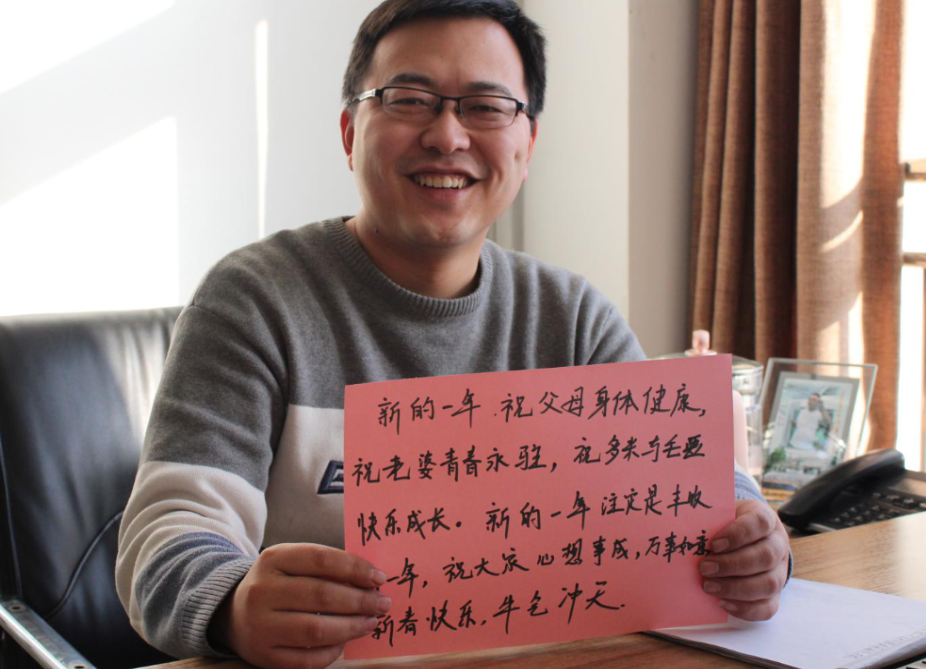 新的一年.祝父母身体健康,
祝老婆青春永驻,祝多米与毛豆
快乐成长。新的一年注定是丰收
一年,祝大家心想事成,万事如意
新春快乐.牛气冲天.